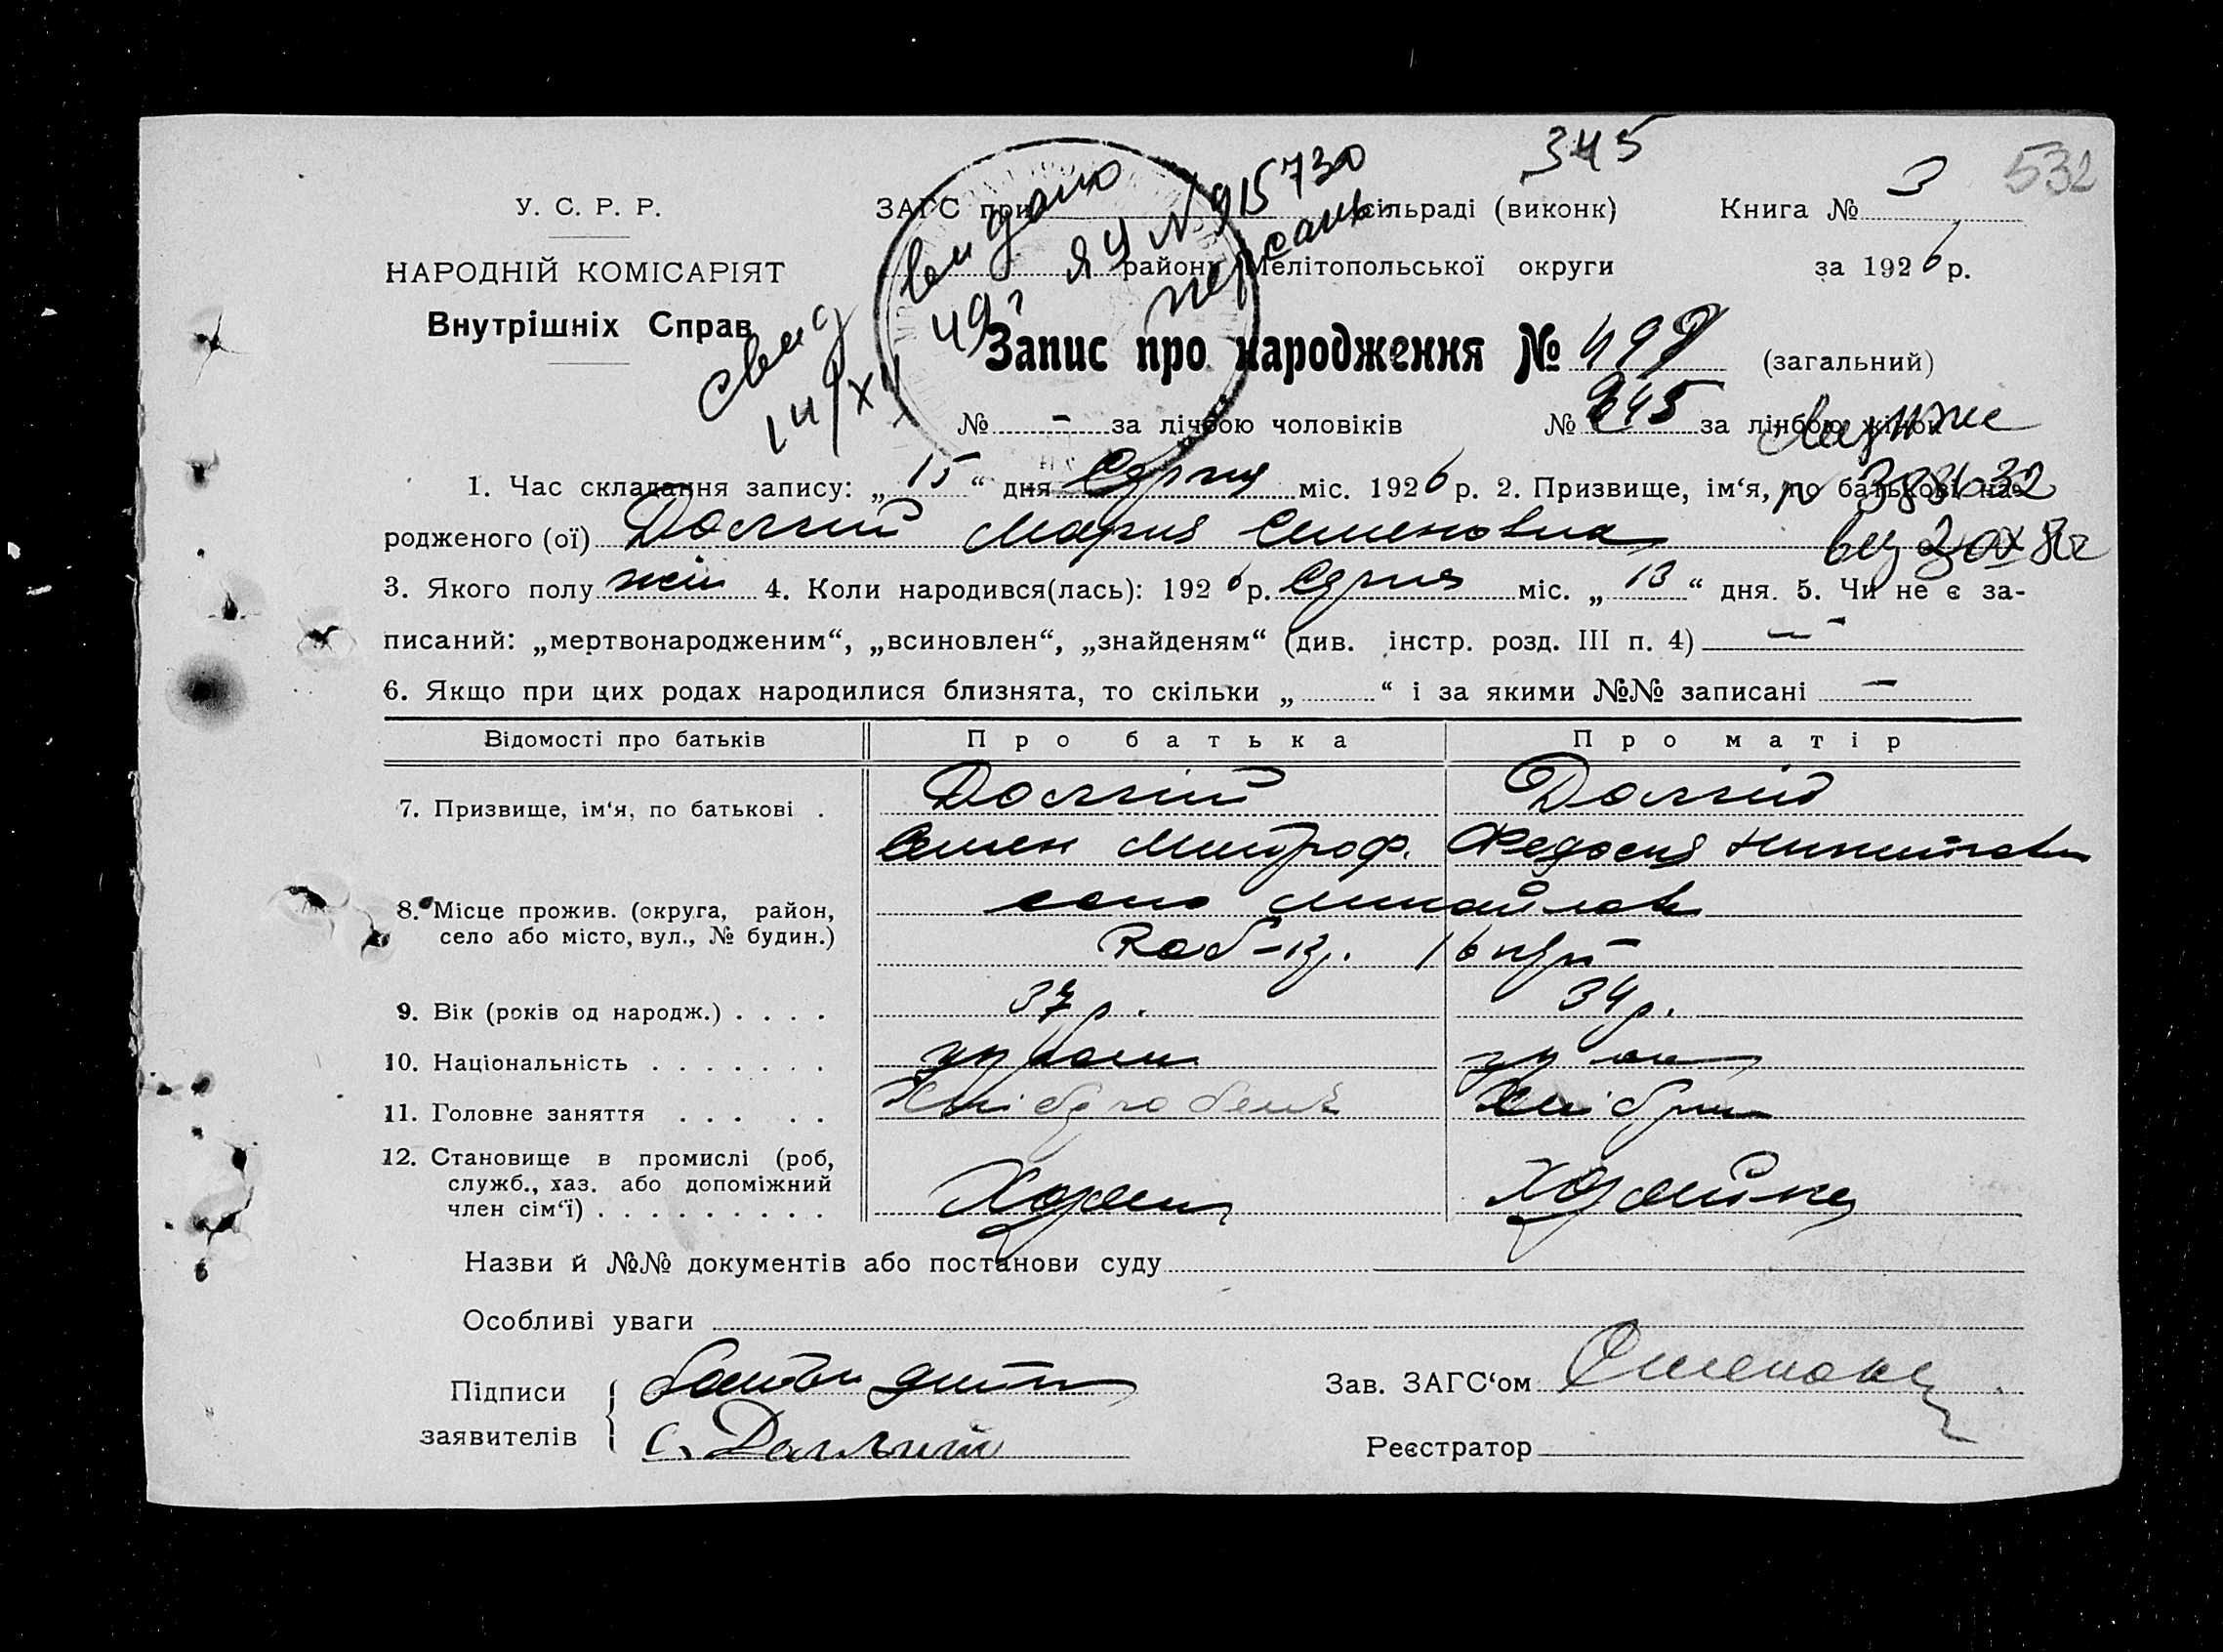 345
532
У. С. Р. Р.
НАРОДНІЙ КОМІСАРІЯТ
Внутрішніх Справ
ЗАГС при сільраді (виконк)
району Мелітопольської округи
Книга № 3
за 1926 р.
свид видано
14/XII 49 г ЯЧ № 915730
Запис про народження № 499 (загальний)
№ - за лічбою чоловіків № 245 за лічбою жінок
1. Час складання запису: „15“ дня Серпня міс. 1926 р. 2. Призвище, ім‘я, по батькові на-
родженого (ої) Долгий Мария Семеновна
3. Якого полу жін 4. Коли народився(лась): 1926 р. Серпня міс. „13“ дня. 5. Чи не є за-
писаний: „мертвонародженим“, „всиновлен“, „знайденям“ (див. інстр. розд. III п. 4) —
6. Якщо при цих родах народилися близнята, то скільки „ “ і за якими №№ записані —
Відомості про батьків Про батька Про матір
7. Призвище, ім‘я, по батькові . Долгий Долгий
Семен Митроф. Федосия Никитовн
8. Місце прожив. (округа, район, село або місто, вул., № будин.) село Михайловк
9. Вік (років од народж.) . . . . 37 р. 34 р.
10. Національність . . . . . . .
11. Головне заняття . . . . . Хліборобство
12. Становище в промислі (роб, служб., хаз. або допоміжний член сім‘ї) . . . . . . . . . Хозяин Хозяйка
Назви й №№ документів або постанови суду
Особливі уваги
Підписи заявителів
С. Долгий
Зав. ЗАГС‘ом
Реєстратор